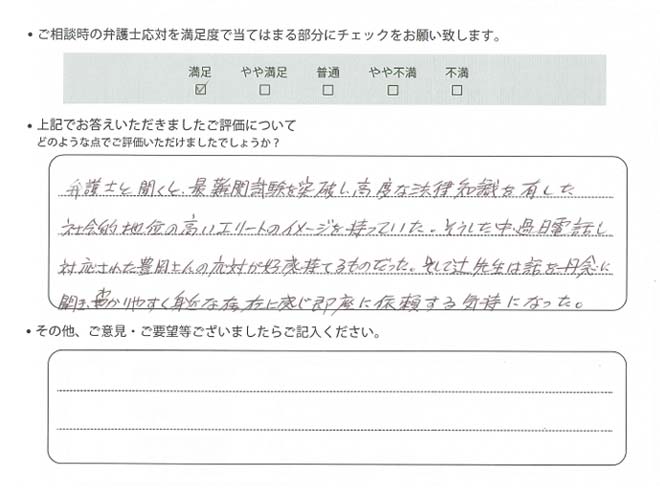 • ご相談時の弁護士応対を満足度で当てはまる部分にチェックをお願い致します。
満足 やや満足 普通 やや不満 不満
☑ □ □ □ □
• 上記でお答えいただきましたご評価について
どのような点でご評価いただけましたでしょうか？
弁護士と聞くと、最難関試験を突破し、高度な法律知識を有した
社会的地位の高いエリートのイメージを持っていた。そうした中、過日電話し
対応された豊岡さんの応対が好感持てるものだった。そして辻先生は話を丹念に
聞き、分かりやすく身近な存在に感じ即座に依頼する気持になった。
• その他、ご意見・ご要望等ございましたらご記入ください。